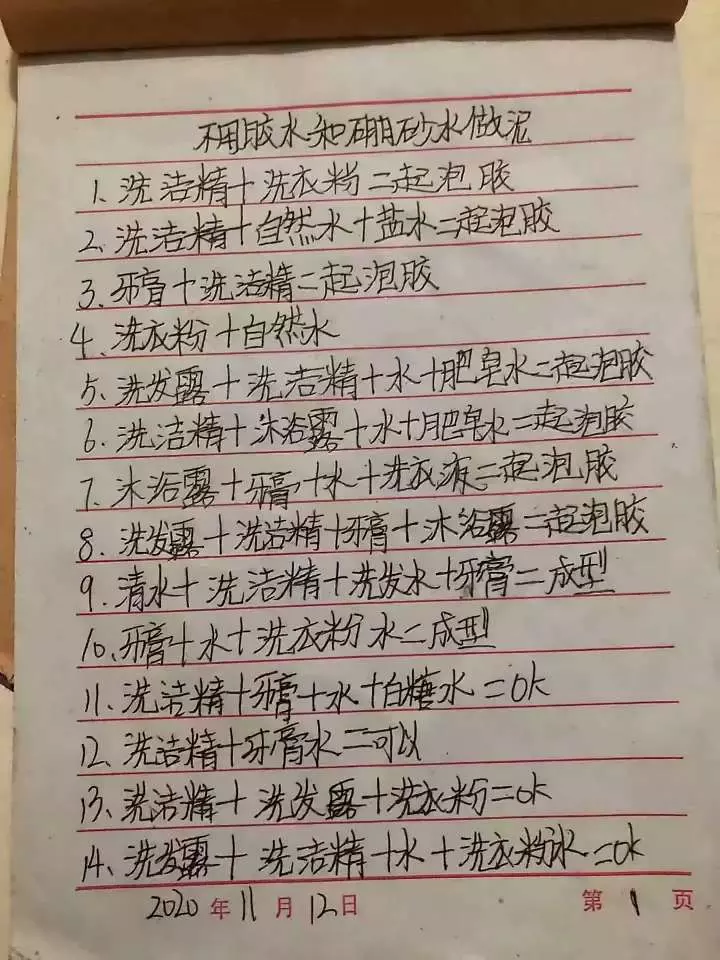 不用胶水和硼砂水做泥
1. 洗洁精+洗衣粉=起泡胶
2. 洗洁精+自然水+盐水=起泡胶
3. 牙膏+洗洁精=起泡胶
4. 洗衣粉+自然水
5. 洗发露+洗洁精+水+肥皂水=起泡胶
6. 洗洁精+沐浴露+水+肥皂水=起泡胶
7. 沐浴露+牙膏+水+洗衣液=起泡胶
8. 洗发露+洗洁精+牙膏+沐浴露=起泡胶
9. 清水+洗洁精+洗发水+牙膏=成型
10. 牙膏+水+洗衣粉水=成型
11. 洗洁精+牙膏+水+白糖水=ok
12. 洗洁精+牙膏水=可以
13. 洗洁精+洗发露+洗衣粉=ok
14. 洗发露+洗洁精+水+洗衣粉水=ok
2020年11月12日 第1页